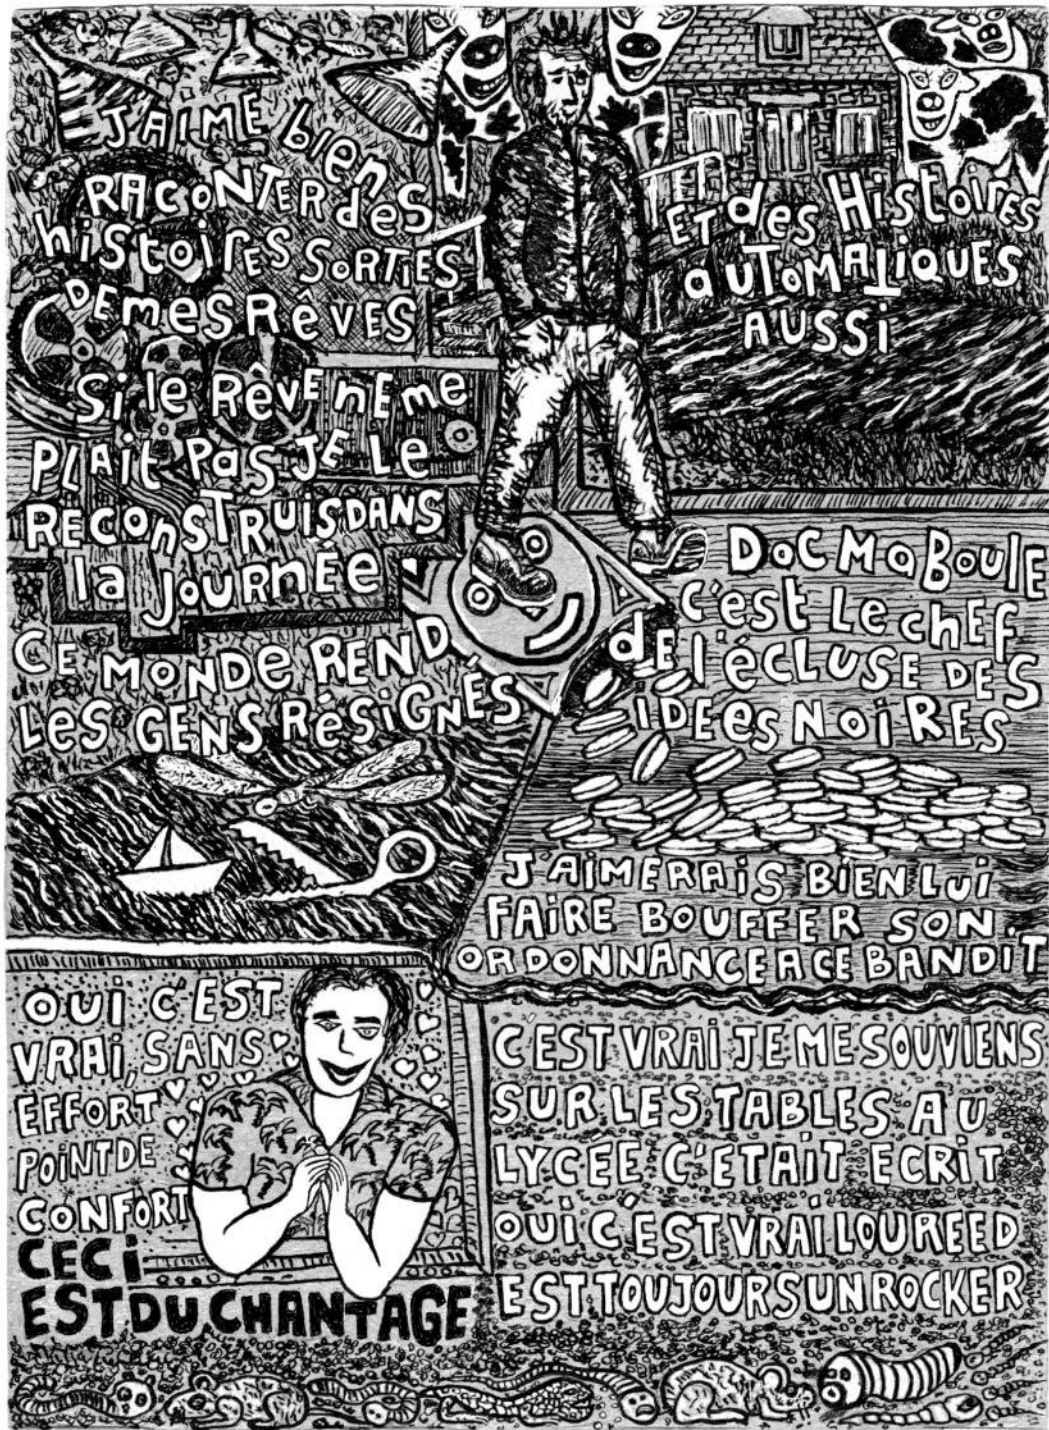 J'AIME bien
RACONTER des
histoires SORTIES
DE mes RÊVES
Si le RÊVE nE me
PLAIT PAS JE Le
RECONSTRUIS DANS
la JOURNÉE
CE MONDE REND
LES GENS RÉSIGNÉS
ET des Histoires
AUTOMATIQUES
AUSSI
DOC MaBOULE
C'est LE chEF
dE l'ÉCLUSE DES
IDÉES NOIRES
J'AIMERAIS BIEN LUI
FAIRE BOUFFER SON
ORDONNANCE A CE BANDIT
OUI C'EST
VRAI, SANS
EFFORT
POINT DE
CONFORT
CECI
EST DU CHANTAGE
C'EST VRAI JE ME SOUVIENS
SUR LES TABLES AU
LYCÉE C'ETAIT ECRIT
OUI C'EST VRAI LOU REED
EST TOUJOURS UN ROCKER